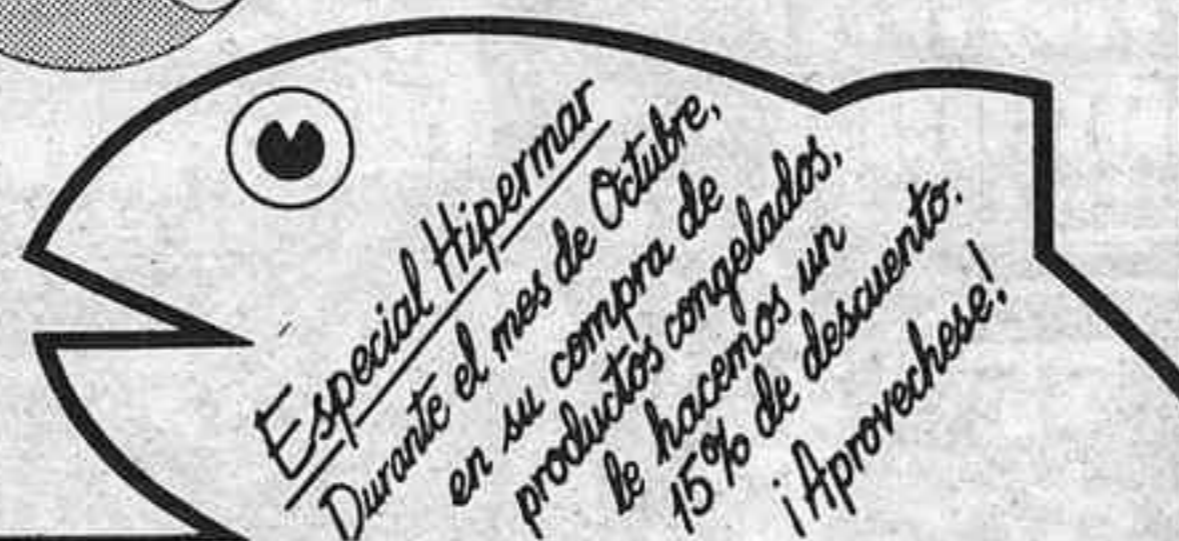 Especial Hipermar
Durante el mes de Octubre,
en su compra de
productos congelados,
le hacemos un
15% de descuento.
¡Aprovechese!